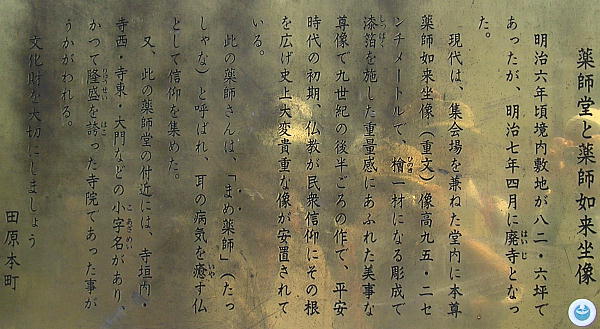 薬師堂と薬師如来坐像
明治六年頃境内敷地が八二・六坪で
あったが、明治七年四月に廃寺となっ
た。
現代は、集会場を兼ねた堂内に本尊
薬師如来坐像（重文）像高九五・二セ
ンチメートルで、檜一材になる彫成で
漆箔を施した重量感にあふれた美事な
尊像で九世紀の後半ごろの作で、平安
時代の初期、仏教が民衆信仰にその根
を広げ史上大変貴重な像が安置されて
いる。
此の薬師さんは、「まめ薬師」（たっ
しゃな）と呼ばれ、耳の病気を癒す仏
として信仰を集めた。
又、此の薬師堂の付近には、寺垣内・
寺西・寺東・大門などの小字名があり、
かつて隆盛を誇った寺院であった事が
うかがわれる。
文化財を大切にしましょう
田原本町